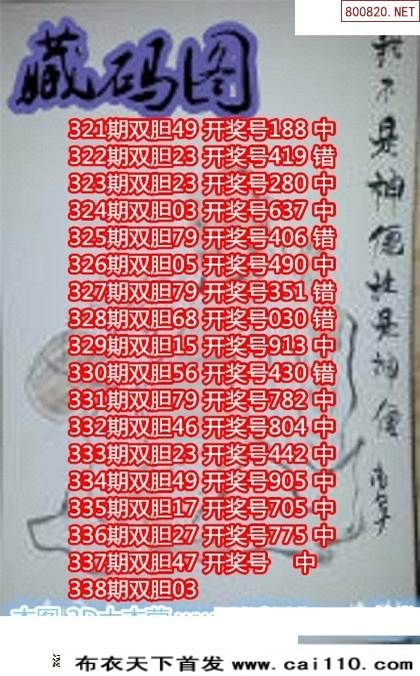 800820.NET
藏码图
我不是神
但
是神
321期双胆49 开奖号188 中
322期双胆23 开奖号419 错
323期双胆23 开奖号280 中
324期双胆03 开奖号637 中
325期双胆79 开奖号406 错
326期双胆05 开奖号490 中
327期双胆79 开奖号351 错
328期双胆68 开奖号030 错
329期双胆15 开奖号913 中
330期双胆56 开奖号430 错
331期双胆79 开奖号782 中
332期双胆46 开奖号804 中
333期双胆23 开奖号442 中
334期双胆49 开奖号905 中
335期双胆17 开奖号705 中
336期双胆27 开奖号775 中
337期双胆47 开奖号 中
338期双胆03
布衣天下首发 www.cai110.com